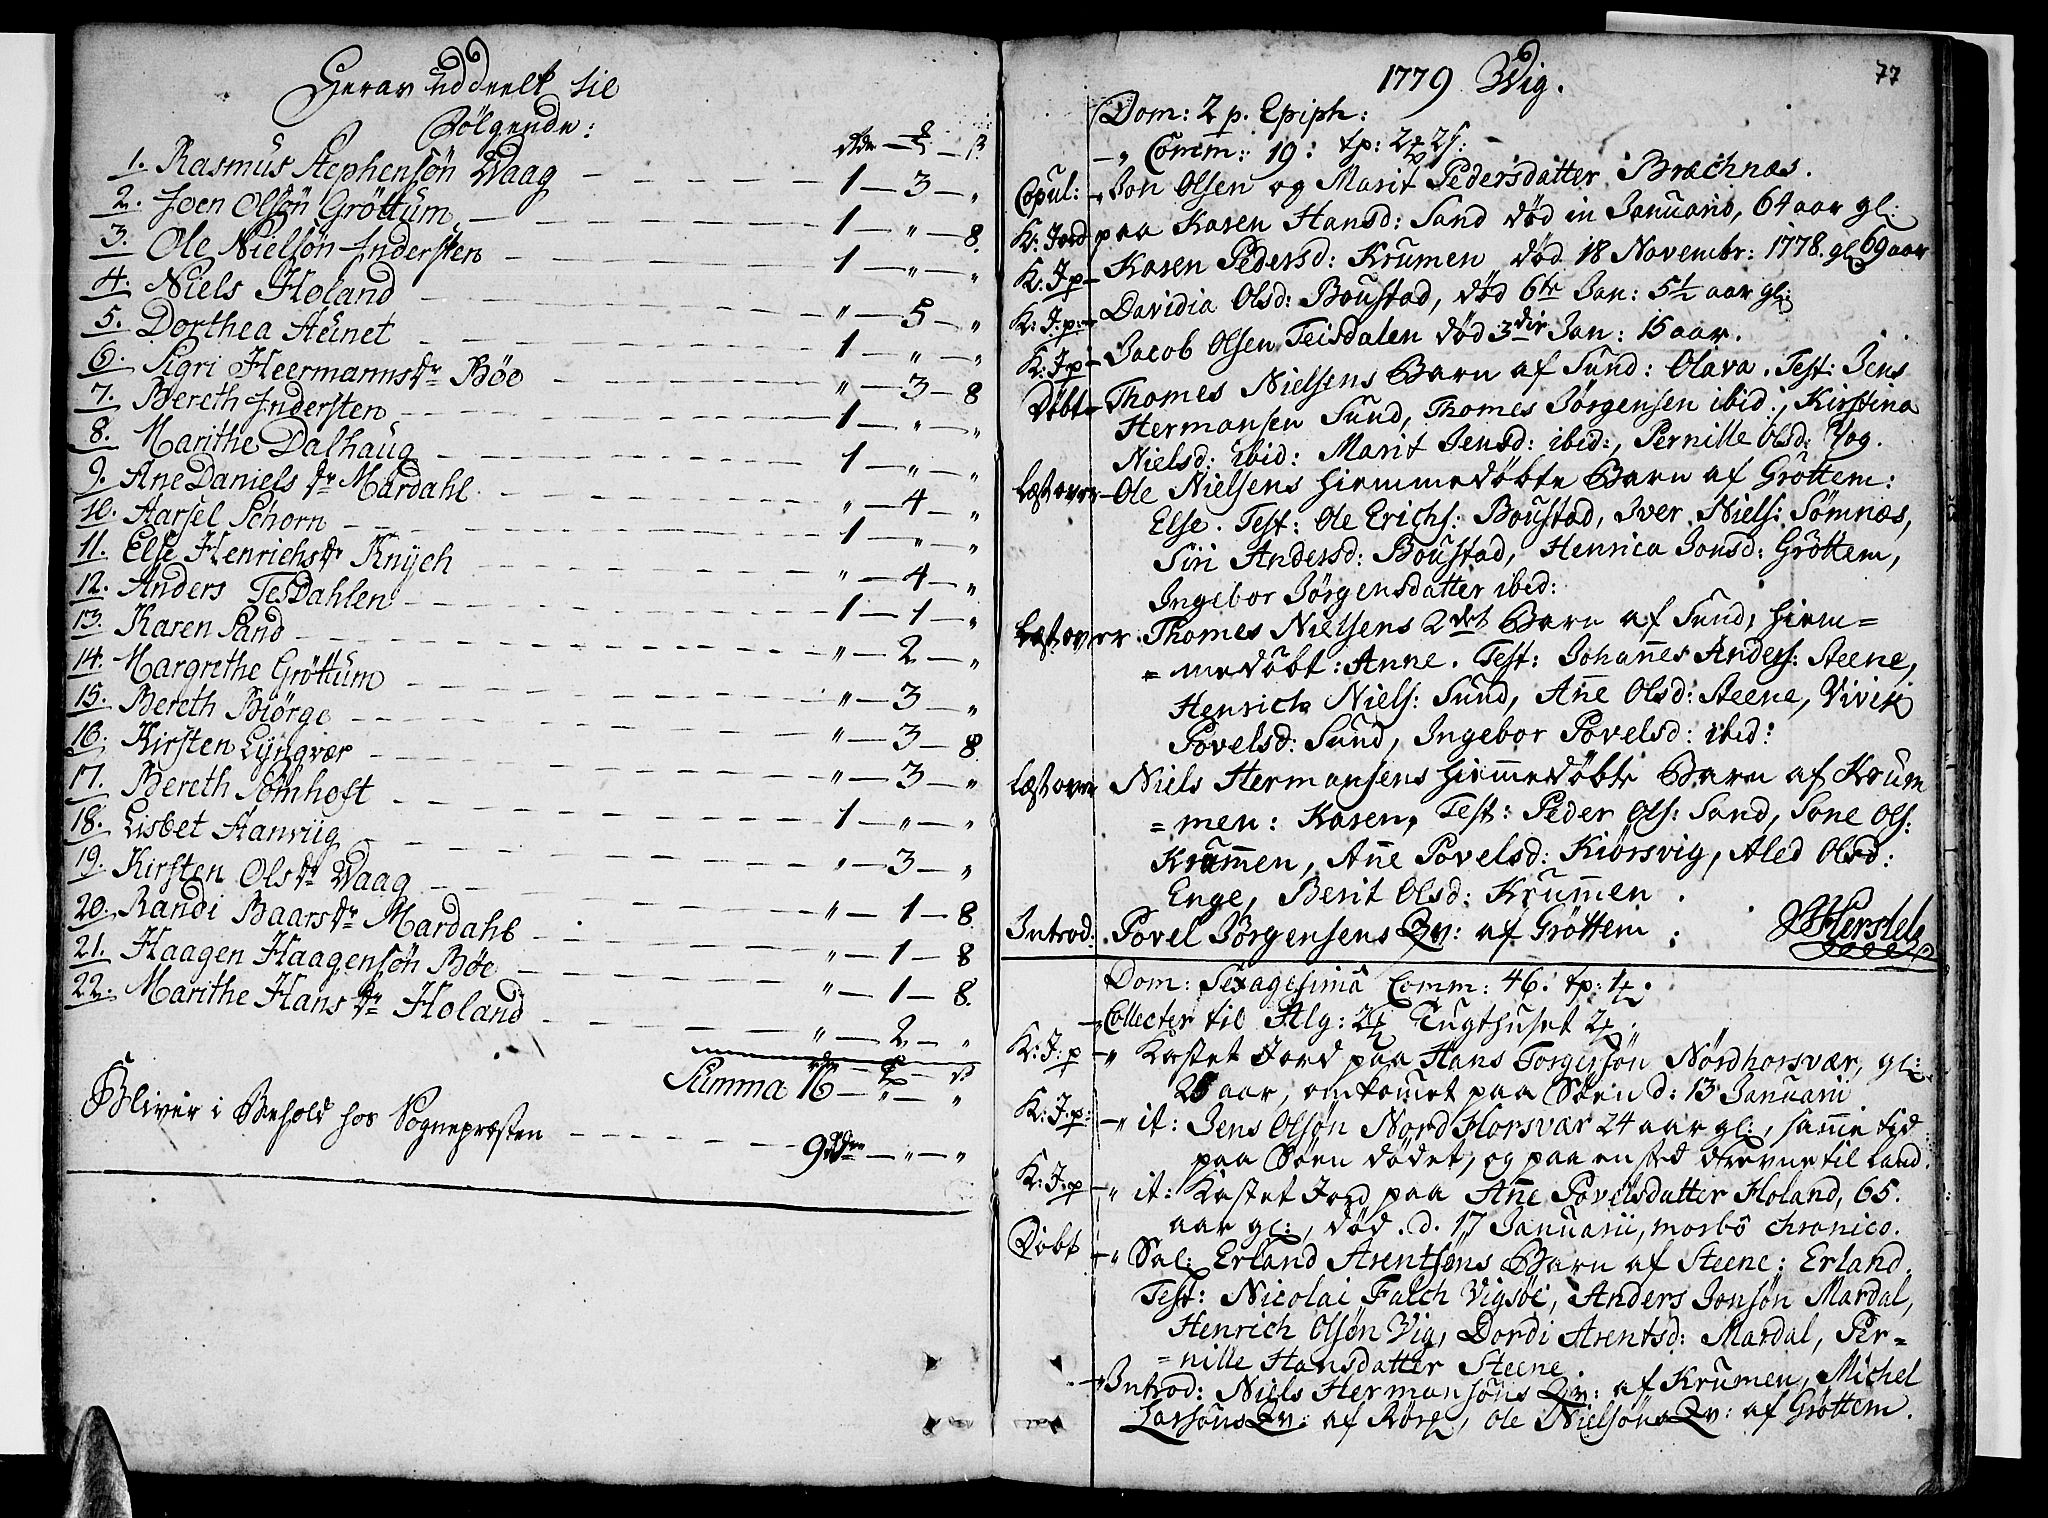 Herav uddeelt til
Følgende:
rdr — ₰ — ß
1. Rasmus Stephensøn Waag — 1 — 3 — "
2. Joen Olsøn Grøttum — 1 — " — 8.
3. Ole Nielsøn Indersten — 1 — " — "
4. Niels Holand — " — 5 — "
5. Dorthea Steinet — 1 — " — "
6. Sigri Heermannsdr Bøe — " — 3 — 8
7. Bereth Indersten — 1 — " — "
8. Marithe Dalhaug — 1 — " — "
9. Ane Daniels dr Mardahl — " — 4 — "
10. Aarsel Schorn — 1 — " — "
11. Else Henrichsdr Knÿch — " — 4 — "
12. Anders Tesdahlen — 1 — 1 — "
13. Karen Sand — " — 2 — "
14. Margrethe Grøttum — " — 3 — "
15. Bereth Biørge — " — 3 — 8
16. Kirsten Lyngvær — " — 3 — "
17. Bereth Sømhoft — 1 — " — "
18. Lisbet Stanviig — " — 3 — "
19. Kirsten Olsdr Waag — " — 1 — 8
20. Randi Baarsdr Mardahl — " — 1 — 8
21. Haagen Haagensøn Bøe — " — 1 — 8.
22. Marithe Hans dr Holand — " — 2 — "
Summa 16 — " — "
Bliver i Behold hos Sognepræsten — 9 rdr — " — "
1779 Wig. 77
Dom: 2 p. Epiph:
" Comm: 19: tp:
Copul: " Jon Olsen og Marit Pedersdatter Brechnæs.
K: Jord paa Karen Hansd: Sand død in Januario, 64 aar gl:
K: J p — Karen Pedersd: Krumen død 18 Novembr: 1778. gl 69 aar
K: J: p: — Davidia Olsd: Boustad, død 6te Jan: 5½ aar gl:
K: J p — Jacob Olsen Teisdalen død 3die Jan: 15 aar.
Døbt — Thomes Nielsens Barn af Sund: Olava. Test: Jens
Hermansen Sund, Thomes Jørgensen ibid:, Kirstina
Nielsd: ibid: Marit Jensd: ibid:, Pernille Olsd: Vog.
Læst over — Ole Nielsens hiemmedøbte Barn af Grøttem:
Else. Test: Ole Erichs: Boustad, Iver Niels: Sömnæs,
Siri Andersd: Boustad, Henrica Jonsd: Grøttem,
Ingebor Jørgensdatter ibid:
Læst over Thomes Nielsens 2det Barn af Sund, hiem=
=medøbt: Anne. Test: Johañes Anders: Steene,
Henrich Niels: Sund, Añe Olsd: Steene, Vivik
Povelsd: Sund, Ingebor Povelsd: ibid:
Læst over Niels Hermansens hiemmedøbte Barn af Krum
=men: Karen, Test: Peder Ols: Sand, Sone Ols:
Krum̃en, Añe Povelsd: Kiørsvig, Aled Olsd:
Enge, Berit Olsd: Krum̃en.
Introd. Povel Jørgensens Qv: af Grøttem:
Dom: Sexagesima Comm: 46. tp:
" Collecter til Alg: Tugthuset
K: J: p — " Kastet Jord paa Hans Torgersøn Nordhorsvær, gl:
25 aar, omkom̃et paa Søen d: 13 Januarii
K: J: p: — " it: Jens Olsøn Nord Horsvær 24 aar gl:, sam̃e tid
paa Søen dødet, og paa en sted drevne til Land.
K: J: p — " it: Kastet Jord paa Añe Povelsdatter Holand, 65.
aar gl:, død. d. 17 Januarii, morbo chronico.
Døbt — " Sal: Erland Arentsøns Barn af Steene: Erland.
Test: Nicolai Falch Vigsøe, Anders Jonsøn Mardal,
Henrich Olsøn Vig, Dordi Arentsd: Mardal, Per=
=nille Hansdatter Steene.
" Introd: Niels Hermansøns Qv: af Krumen, Michel
Larsøns Qv: af Rørø, Ole Nielsøns Qv: af Grøttem.